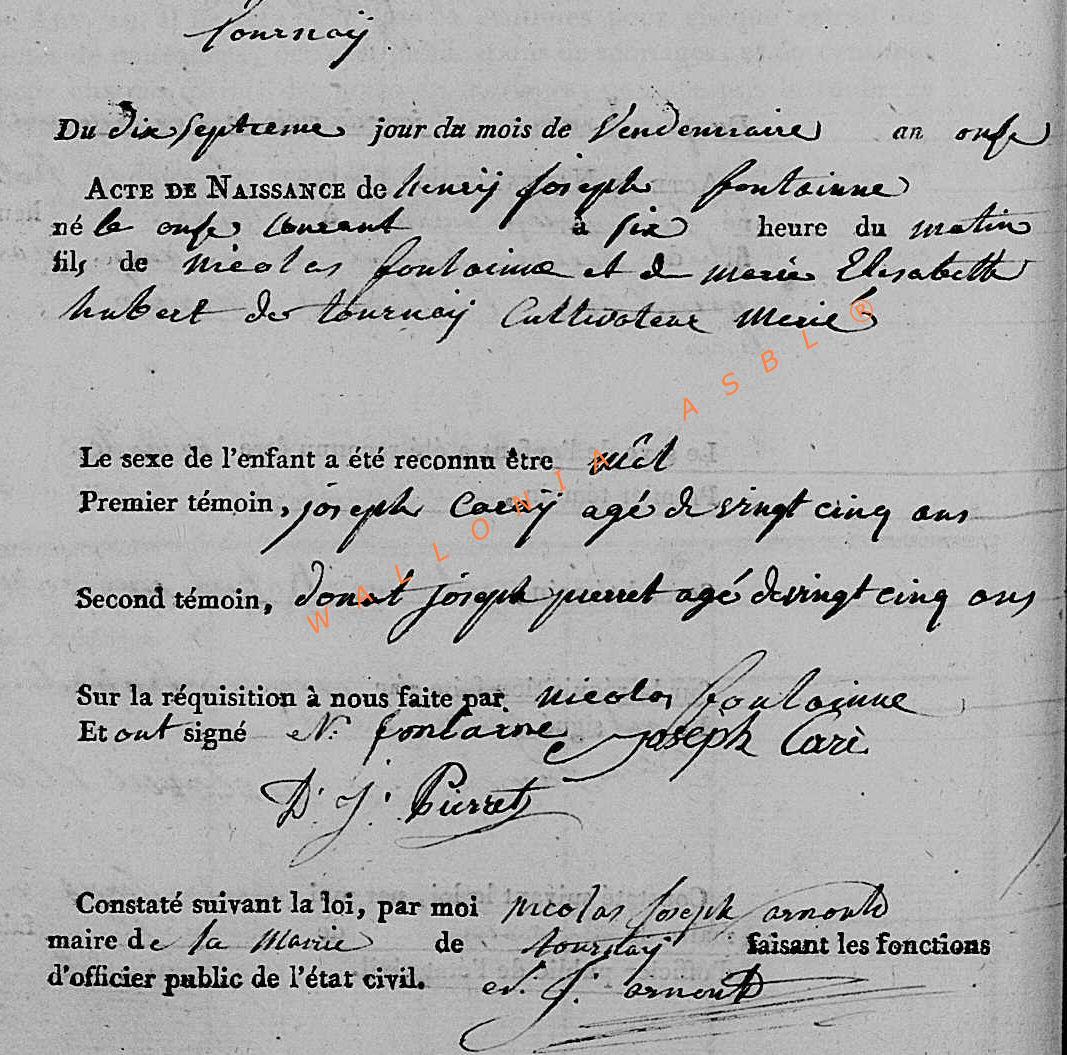 tournay
Du dix septieme jour du mois de Vendemiaire an onse
ACTE DE NAISSANCE de henry joseph fontainne
né le onse courant à six heure du matin
fils de nicolas fontainne et de marie Elisabette
hubert de tournay Cultivateur Marié
Le sexe de l'enfant a été reconnu être
Premier témoin, joseph Carey agé de vingt cinq ans
Second témoin, donat joseph pierret agé de vingt cinq ans
Sur la réquisition à nous faite par nicolas fontainne
Et ont signé N. fontaine joseph Carè
D. J. Pierret
Constaté suivant la loi, par moi nicolas joseph arnould
maire de la Mairie de tournay faisant les fonctions
d'officier public de l'état civil. n. J. arnould
WALLONIA ASBL ®